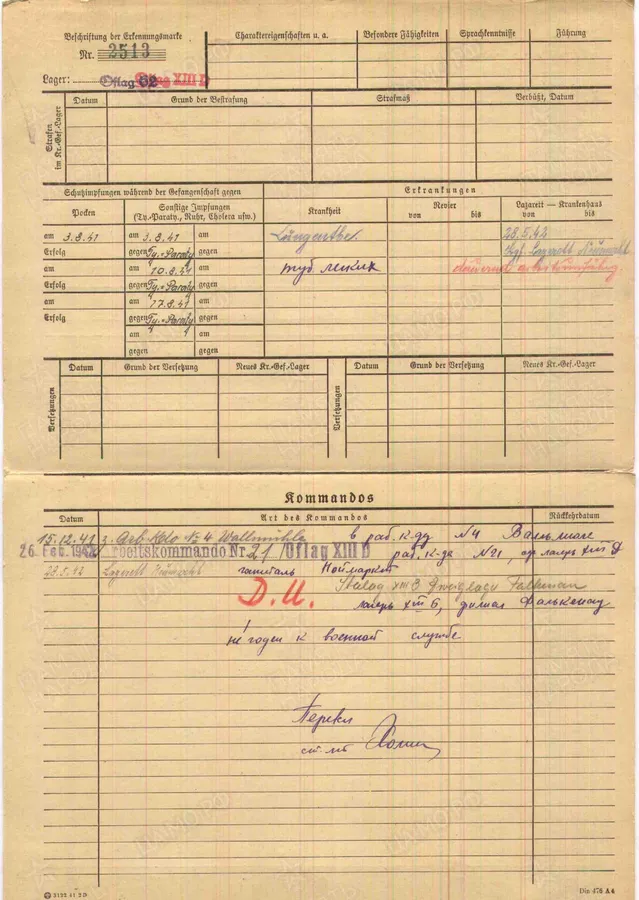 Beschriftung der Erkennungsmarke
Nr. 2513
Lager: Oflag 62 Oflag XIII D
Charaktereigenschaften u. a.
Besondere Fähigkeiten
Sprachkenntnisse
Führung
Strafen im Kr.-Gef.-Lager
Datum
Grund der Bestrafung
Strafmaß
Verbüßt, Datum
Schutzimpfungen während der Gefangenschaft gegen
Erkrankungen
Pocken
Sonstige Impfungen
(Ty.-Paraty., Ruhr, Cholera usw.)
Krankheit
Revier
von bis
Lazarett — Krankenhaus
von bis
am 3.8.41 am 3.8.41 am Lungentbc. 28.5.42
Erfolg gegen Ty.-Paraty gegen Lazarett Neumarkt
am am 10.8.41 am туб. легких dauernd arbeitsunfähig
Erfolg gegen Ty.-Paraty gegen
am am 17.8.41 am
Erfolg gegen Ty.-Paraty gegen
am am
gegen gegen
Versetzungen
Datum
Grund der Versetzung
Neues Kr.-Gef.-Lager
Versetzungen
Datum
Grund der Versetzung
Neues Kr.-Gef.-Lager
Kommandos
Datum
Art des Kommandos
Rückkehrdatum
15.12.41 z. Arb. Kdo № 4 Wallmühle в раб. к-ду №4 Вальмюле
26. Feb. 1942 Arbeitskommando Nr. 21 /Oflag XIII D раб. к-да №21, оф. лагерь XIII Д
23.5.42 Lazarett Neumarkt госпиталь Ноймаркт
Stalag XIII B Zweiglager Falkenau
D.U. лагерь XIII Б, филиал Фалькенау
не годен к военной службе
Перевел
ст. л-т
2132 41 2D
Din 476 A 4